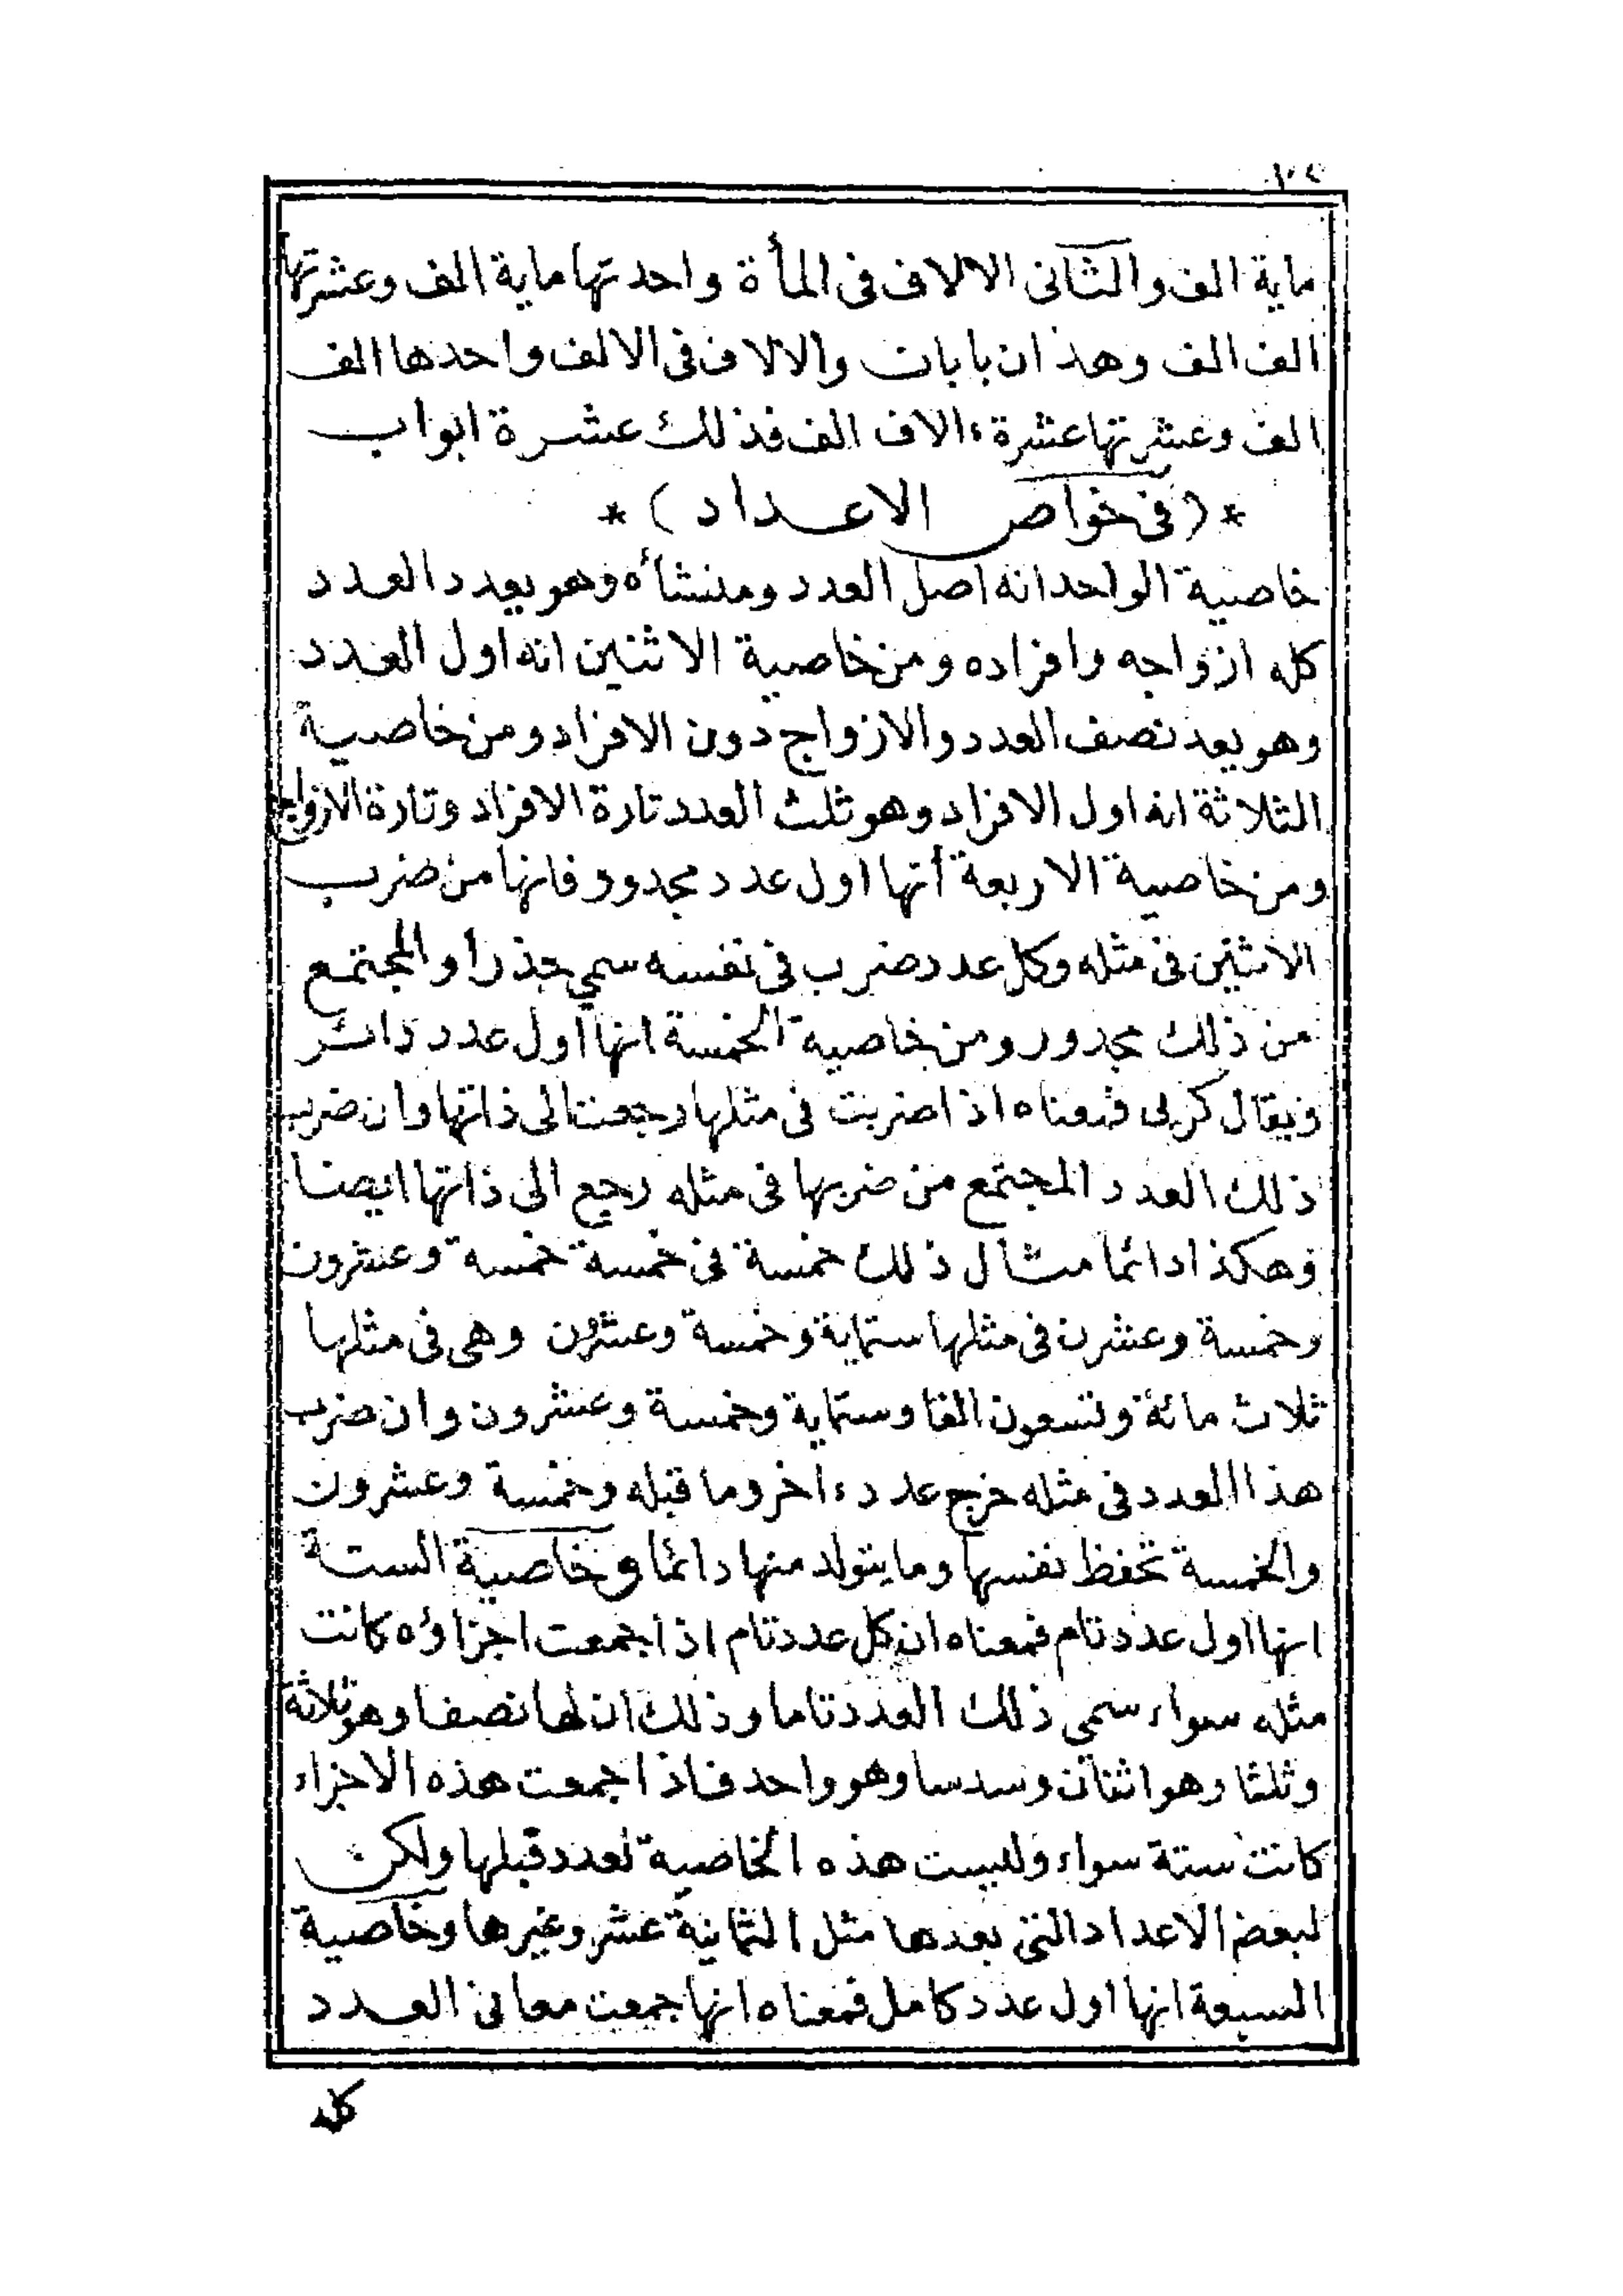 ماية الف والثانى الالاف فى المأة واحدتها ماية الف وعشرتها
الف الف وهذان بابان والالاف فى الالف واحدها الف
الف وعشرتها عشرة ءالاف الف فذلك عشرة ابواب
*(فى خواص الاعداد)*
خاصية الواحد انه اصل العدد ومنشأه وهو يعدد العدد
كله ازواجه وافراده ومن خاصية الاثنين انه اول العدد
وهو يعد نصف العدد والازواج دون الافراد ومن خاصية
الثلاثة انه اول الافراد وهو ثلث العدد تارة الافراد وتارة الازواج
ومن خاصية الاربعة أنها اول عدد مجدور فانها من ضرب
الاثنين فى مثله وكل عدد ضرب فى نفسه سمي جذرا والمجتمع
من ذلك مجدور ومن خاصية الخمسة انها اول عدد دائر
ويقال كربى فمعناه اذا ضربت فى مثلها رجعت الى ذاتها وان ضرب
ذلك العدد المجتمع من ضربها فى مثله رجع الى ذاتها ايضا
وهكذا دائما مثال ذلك خمسة فى خمسة خمسة وعشرون
وخمسة وعشرن فى مثلها ستماية وخمسة وعشرون وهى فى مثلها
ثلاث مائة وتسعون الفا وستماية وخمسة وعشرون وان ضرب
هذا العدد فى مثله خرج عدد ءاخر وما قبله وخمسة وعشرون
والخمسة تحفظ نفسها وما يتولد منها دائما وخاصية الستة
انها اول عدد تام فمعناه ان كل عدد تام اذا جمعت اجزاؤه كانت
مثله سواء سمى ذلك العدد تاما وذلك ان لها نصفا وهو ثلاثة
وثلثا وهو اثنان وسدسا وهو واحد فاذا جمعت هذه الاجزاء
كانت ستة سواء وليست هذه الخاصية لعدد قبلها ولكن
لبعض الاعداد التى بعدها مثل الثمانية عشر وغيرها وخاصية
السبعة انها اول عدد كامل فمعناه انها جمعت معانى العدد
كله